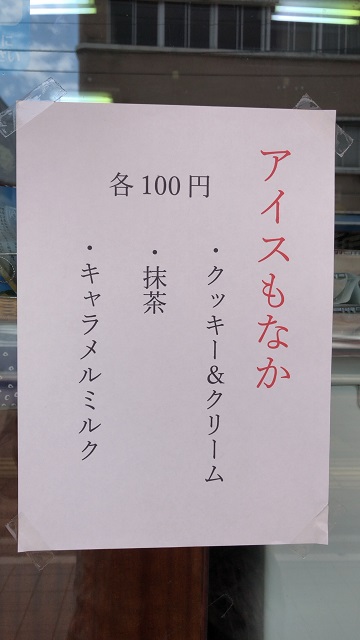 アイスもなか
各100円
・クッキー&クリーム
・抹茶
・キャラメルミルク